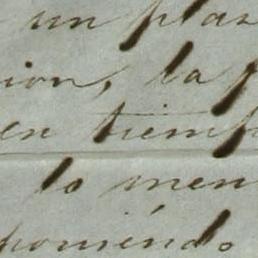 un plaz
ion, la p
en tiemp
lo men
poniendo